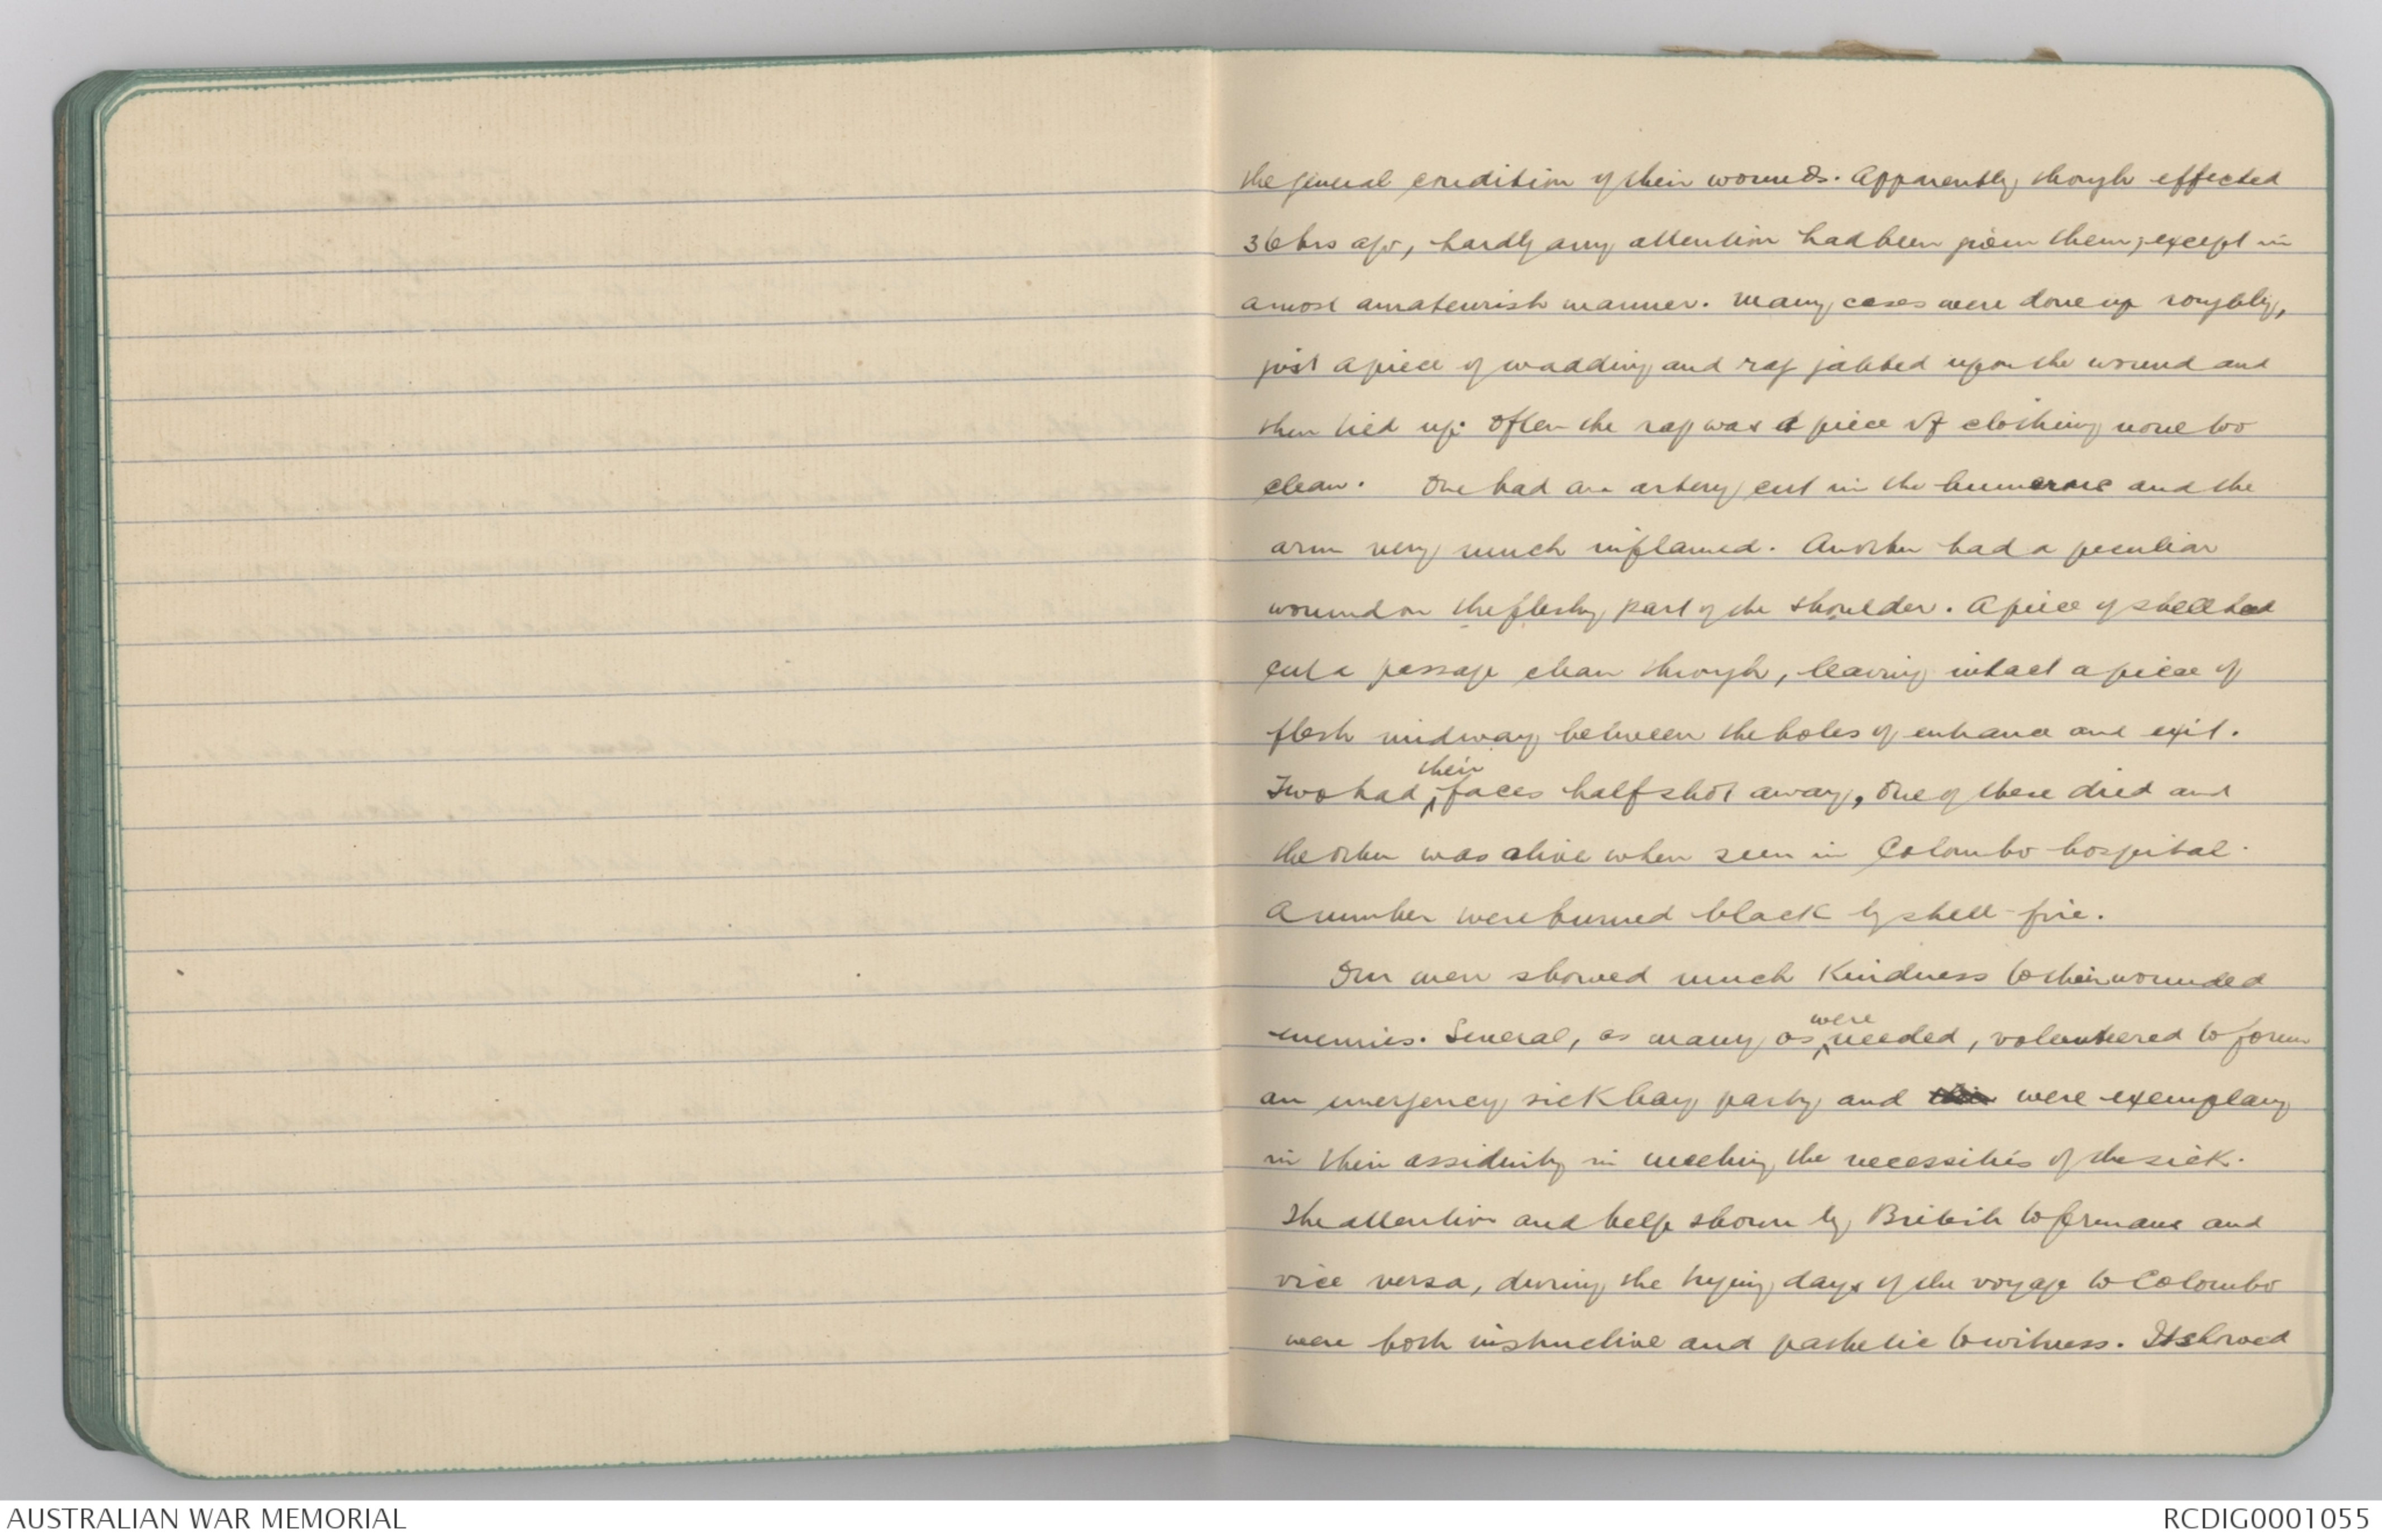 the general condition of their wounds. Apparently, though effected
36 hrs ago, hardly any attention had been given them, except in
a most amateurish manner. Many cases were done up roughly,
just a piece of wadding and rag jabbed upon the wound and
then tied up. Often the rag was a piece of clothing none too
clean. One had an artery cut in the humerous and the
arm very much inflamed. Another had a peculiar
wound on the fleshy part of the shoulder. A piece of shell had
cut a passage clean through, leaving intact a piece of
flesh midway between the holes of entrance and exit.
Two had their faces half shot away, one of these died and
the other was alive when seen in Colombo hospital.
A number were burned black by shell-fire.
Our men showed much kindness to their wounded
enemies. Several, as many as were needed, volunteered to form
an emergency sick bay party and were exemplary
in their assiduity in meeting the necessities of the sick.
The attention and help shown by British to Germans and
vice versa, during the trying days of the voyage to Colombo
were both instructive and pathetic to witness. It showed
AUSTRALIAN WAR MEMORIAL
RCDIG0001055